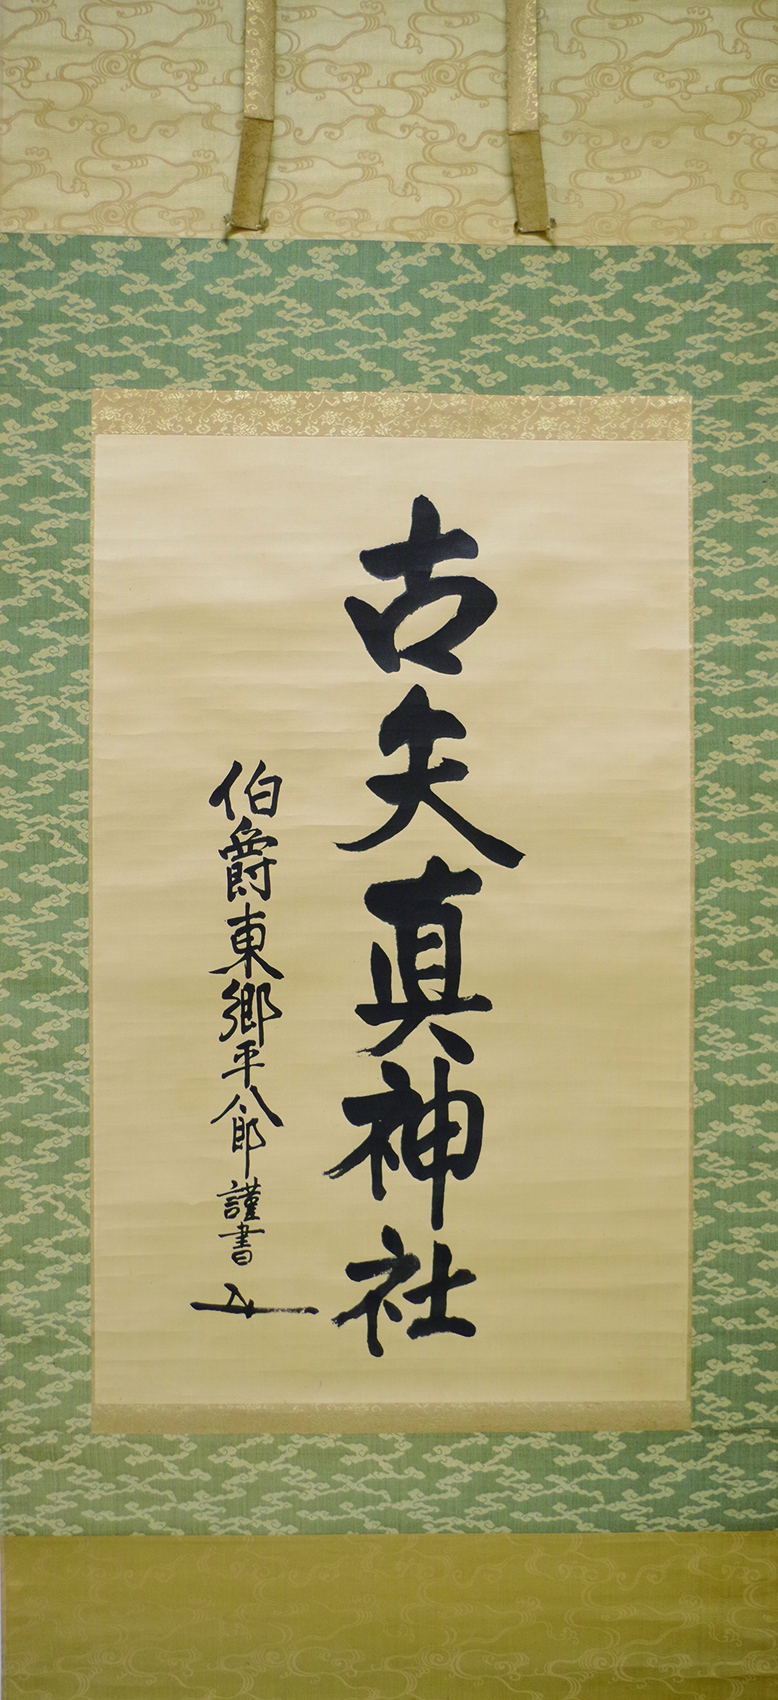 古矢真神社
伯爵東郷平八郎謹書